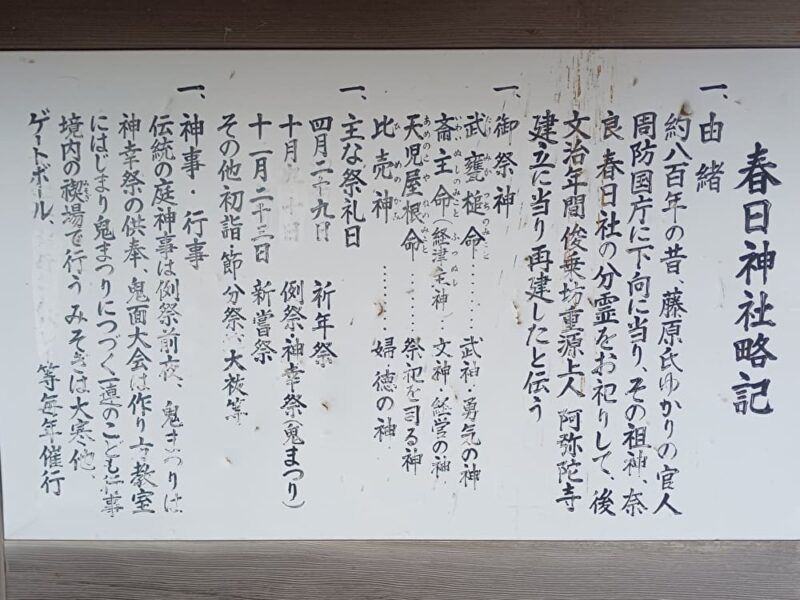 春日神社略記
一、由緒
約八百年の昔、藤原氏ゆかりの官人
周防国庁に下向に当り、その祖神、奈
良 春日社の分霊をお祀りして、後
文治年間俊乗坊重源上人 阿弥陀寺
建立に当り 再建したと伝う
一、御祭神
武甕槌命……… 武神・勇気の神
斎主命(経津主神)… 文神・経営の神
天児屋根命……… 祭祀を司る神
比売神……… 婦徳の神
一、主な祭礼日
四月二十九日 祈年祭
十月 十日 例祭・神幸祭(鬼まつり)
十一月二十三日 新嘗祭
その他 初詣・節分祭、大祓等
一、神事・行事
伝統の庭神事は例祭前夜、鬼まつりは
神幸祭の供奉、鬼面大会は作り方教室
にはじまり鬼まつりにつづく一連のこども行事
境内の禊場で行う みそぎは大寒他、
ゲートボール、 等毎年催行